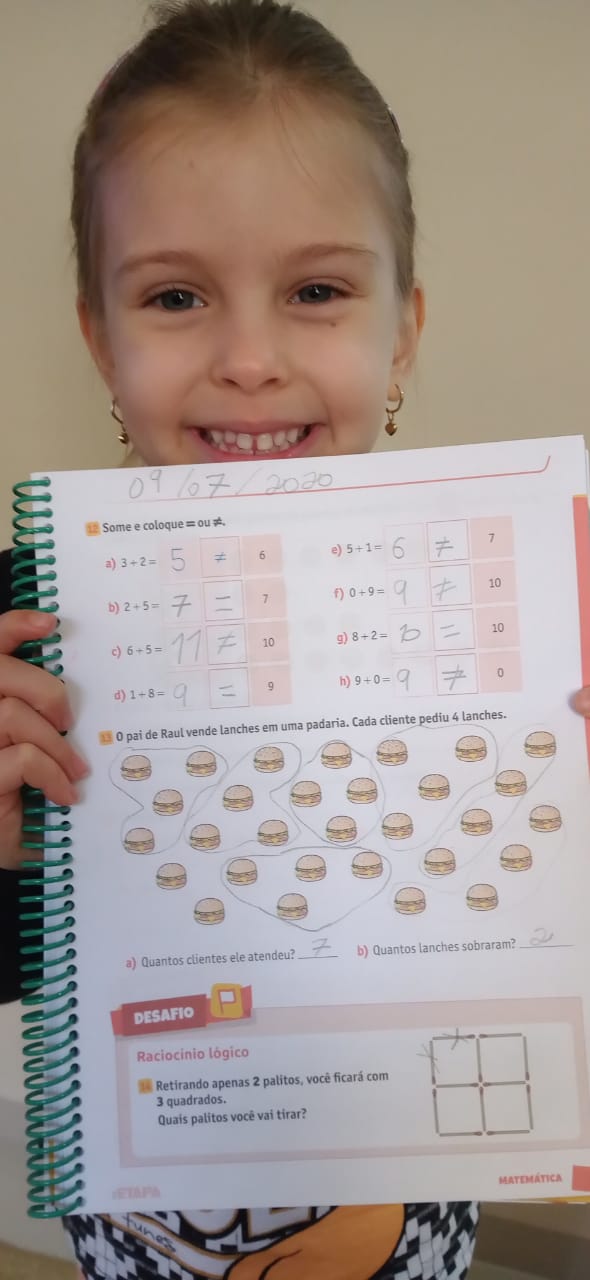 09/07/2020
12 Some e coloque = ou ≠.
a) 3 + 2 = 5 ≠ 6
b) 2 + 5 = 7 = 7
c) 6 + 5 = 11 ≠ 10
d) 1 + 8 = 9 = 9
e) 5 + 1 = 6 ≠ 7
f) 0 + 9 = 9 ≠ 10
g) 8 + 2 = 10 = 10
h) 9 + 0 = 9 ≠ 0
13 O pai de Raul vende lanches em uma padaria. Cada cliente pediu 4 lanches.
a) Quantos clientes ele atendeu? 7
b) Quantos lanches sobraram? 2
DESAFIO
Raciocínio lógico
14 Retirando apenas 2 palitos, você ficará com
3 quadrados.
Quais palitos você vai tirar?
ETAPA
MATEMÁTICA